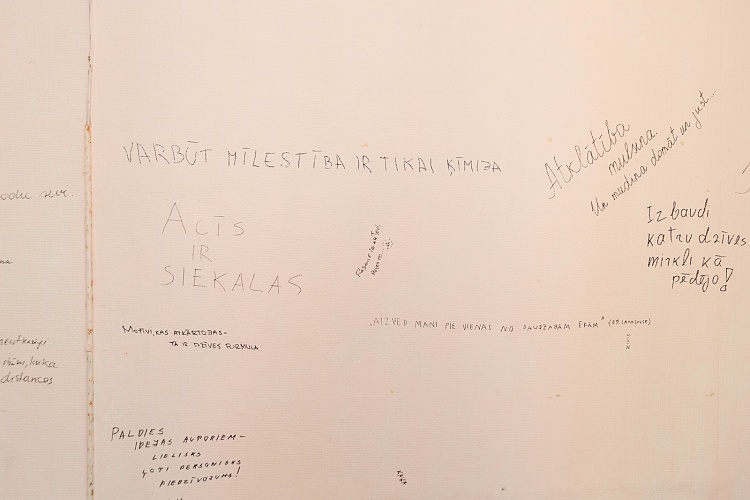 VARBŪT MĪLESTĪBA IR TIKAI ĶĪMIJA
Atklātība
mulsina.
Un mudina domāt un just...
Izbaudi
katru dzīves
mirkli kā
pēdējo!
ACĪS
IR
SIEKALAS
MOTĪVI, KAS ATKĀRTOJAS-
TĀ IR DZĪVES FORMULA.
„AIZVED MANI PIE VIENAS NO DAUDZAJĀM ĒKĀM"
PALDIES
IDEJAS AUTORIEM-
LIELISKS
ĻOTI PERSONISKS
PIEDZĪVOJUMS!
laika
distances